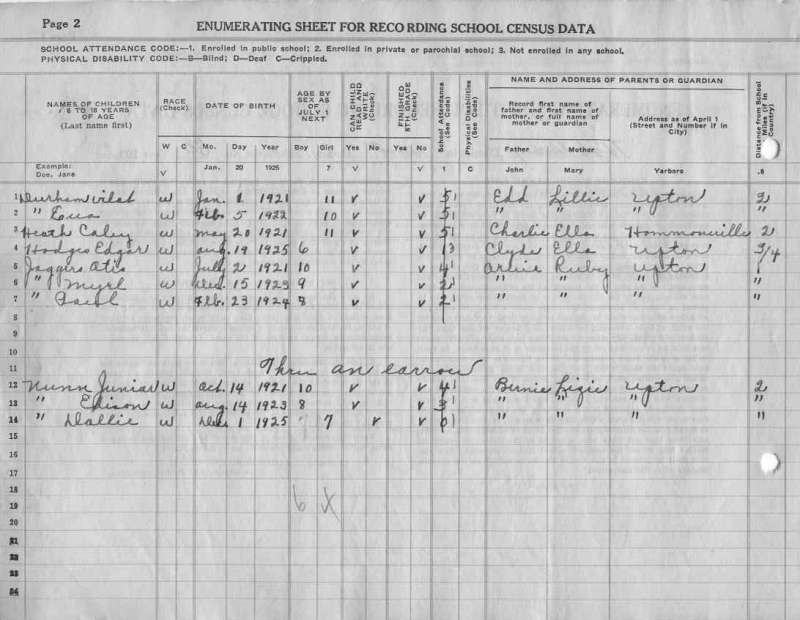 Page 2
ENUMERATING SHEET FOR RECORDING SCHOOL CENSUS DATA
SCHOOL ATTENDANCE CODE:—1. Enrolled in public school; 2. Enrolled in private or parochial school; 3. Not enrolled in any school.
PHYSICAL DISABILITY CODE:—B—Blind; D—Deaf C—Crippled.
NAMES OF CHILDREN 6 TO 18 YEARS OF AGE (Last name first)
RACE (Check)
W C
DATE OF BIRTH
Mo. Day Year
AGE BY SEX AS OF JULY 1 NEXT
Boy Girl
CAN CHILD READ AND WRITE (Check)
Yes No
FINISHED 8TH GRADE (Check)
Yes No
School Attendance (See Code)
Physical Disabilities (See Code)
NAME AND ADDRESS OF PARENTS OR GUARDIAN
Record first name of father and first name of mother, or full name of mother or guardian
Father Mother
Address as of April 1 (Street and Number if in City)
Distance from School Miles (if in Country)
Example: Doe, Jane V Jan. 20 1925 7 V V 1 C John Mary Yarboro .8
1 Durham W Jan. 1 1921 11 v v 5 1 Edd Lillie Upton 2
2 " W Feb. 5 1922 10 v v 5 1 " " " "
3 Heath Caley W May 20 1921 11 v v 5 1 Charlie Ella Hammonville 2
4 Hodges Edgar W Aug. 19 1925 6 v v 1 3 Clyde Ella Upton 3/4
5 Jaggers Otis W July 2 1921 10 v v 4 1 Ruby Upton
6 " Myrl W Dec. 15 1923 9 v v 2 1 " " " "
7 " W Feb. 23 1924 8 v v 2 1 " " " "
8
9
10
11 Thru an earrow
12 Nunn Juniar W Oct. 14 1921 10 v v 4 1 Bernie Lizie Upton 2
13 " Edison W Aug. 14 1923 8 v v 3 1 " " " "
14 " Dallie W Dec 1 1925 7 v v 0 1 " " " "
15
16
17
18
19 6 X
20
21
22
23
24